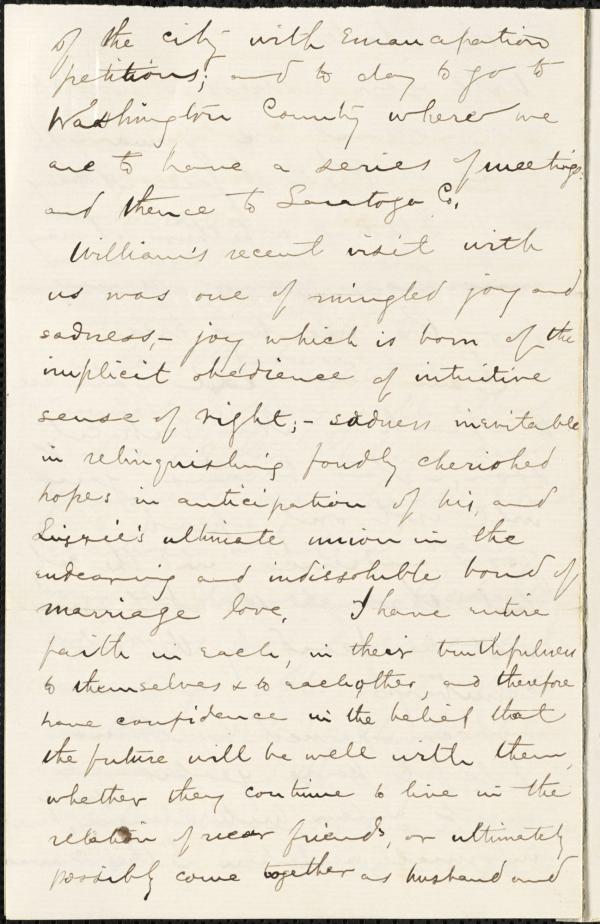 of the city with Emancipation
petitions; and to day to go to
Washington County where we
are to have a series of meetings.
and thence to Saratoga Co.
William's recent visit with
us was one of mingled joy and
sadness,- joy which is born of the
implicit obedience of intuitive
sense of right;- sadness inevitable
in relinquishing fondly cherished
hopes in anticipation of his, and
Lizzie's ultimate union in the
endearing and indissoluble bond of
marriage love. I have entire
faith in each, in their truthfulness
to themselves & to each other, and therefore
have confidence in the belief that
the future will be well with them,
whether they continue to live in the
relation of near friends, or ultimately
possibly come together as husband and